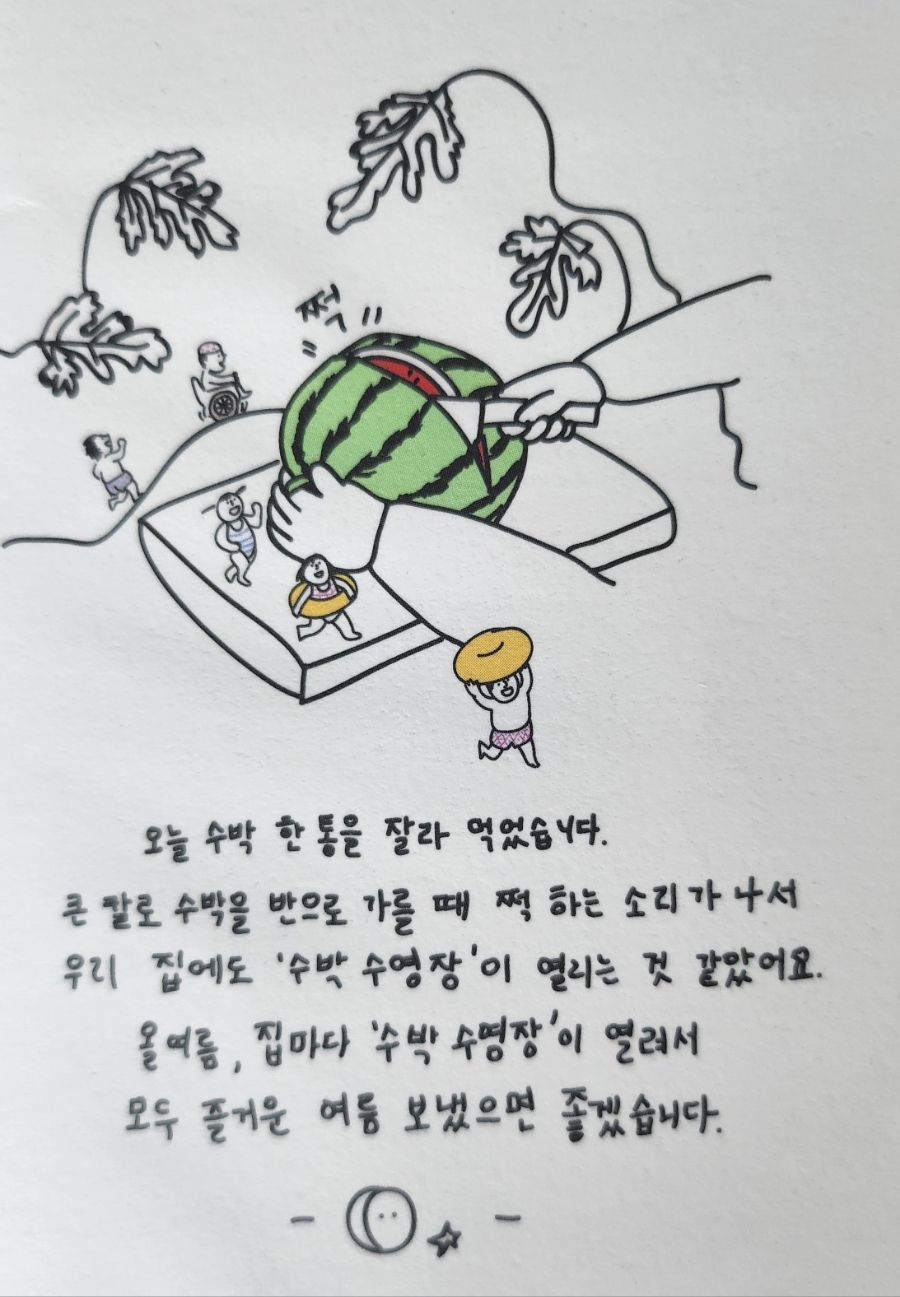 쩍
오늘 수박 한 통을 잘라 먹었습니다.
큰 칼로 수박을 반으로 가를 때 쩍 하는 소리가 나서
우리 집에도 '수박 수영장'이 열리는 것 같았어요.
올여름, 집마다 '수박 수영장'이 열려서
모두 즐거운 여름 보냈으면 좋겠습니다.